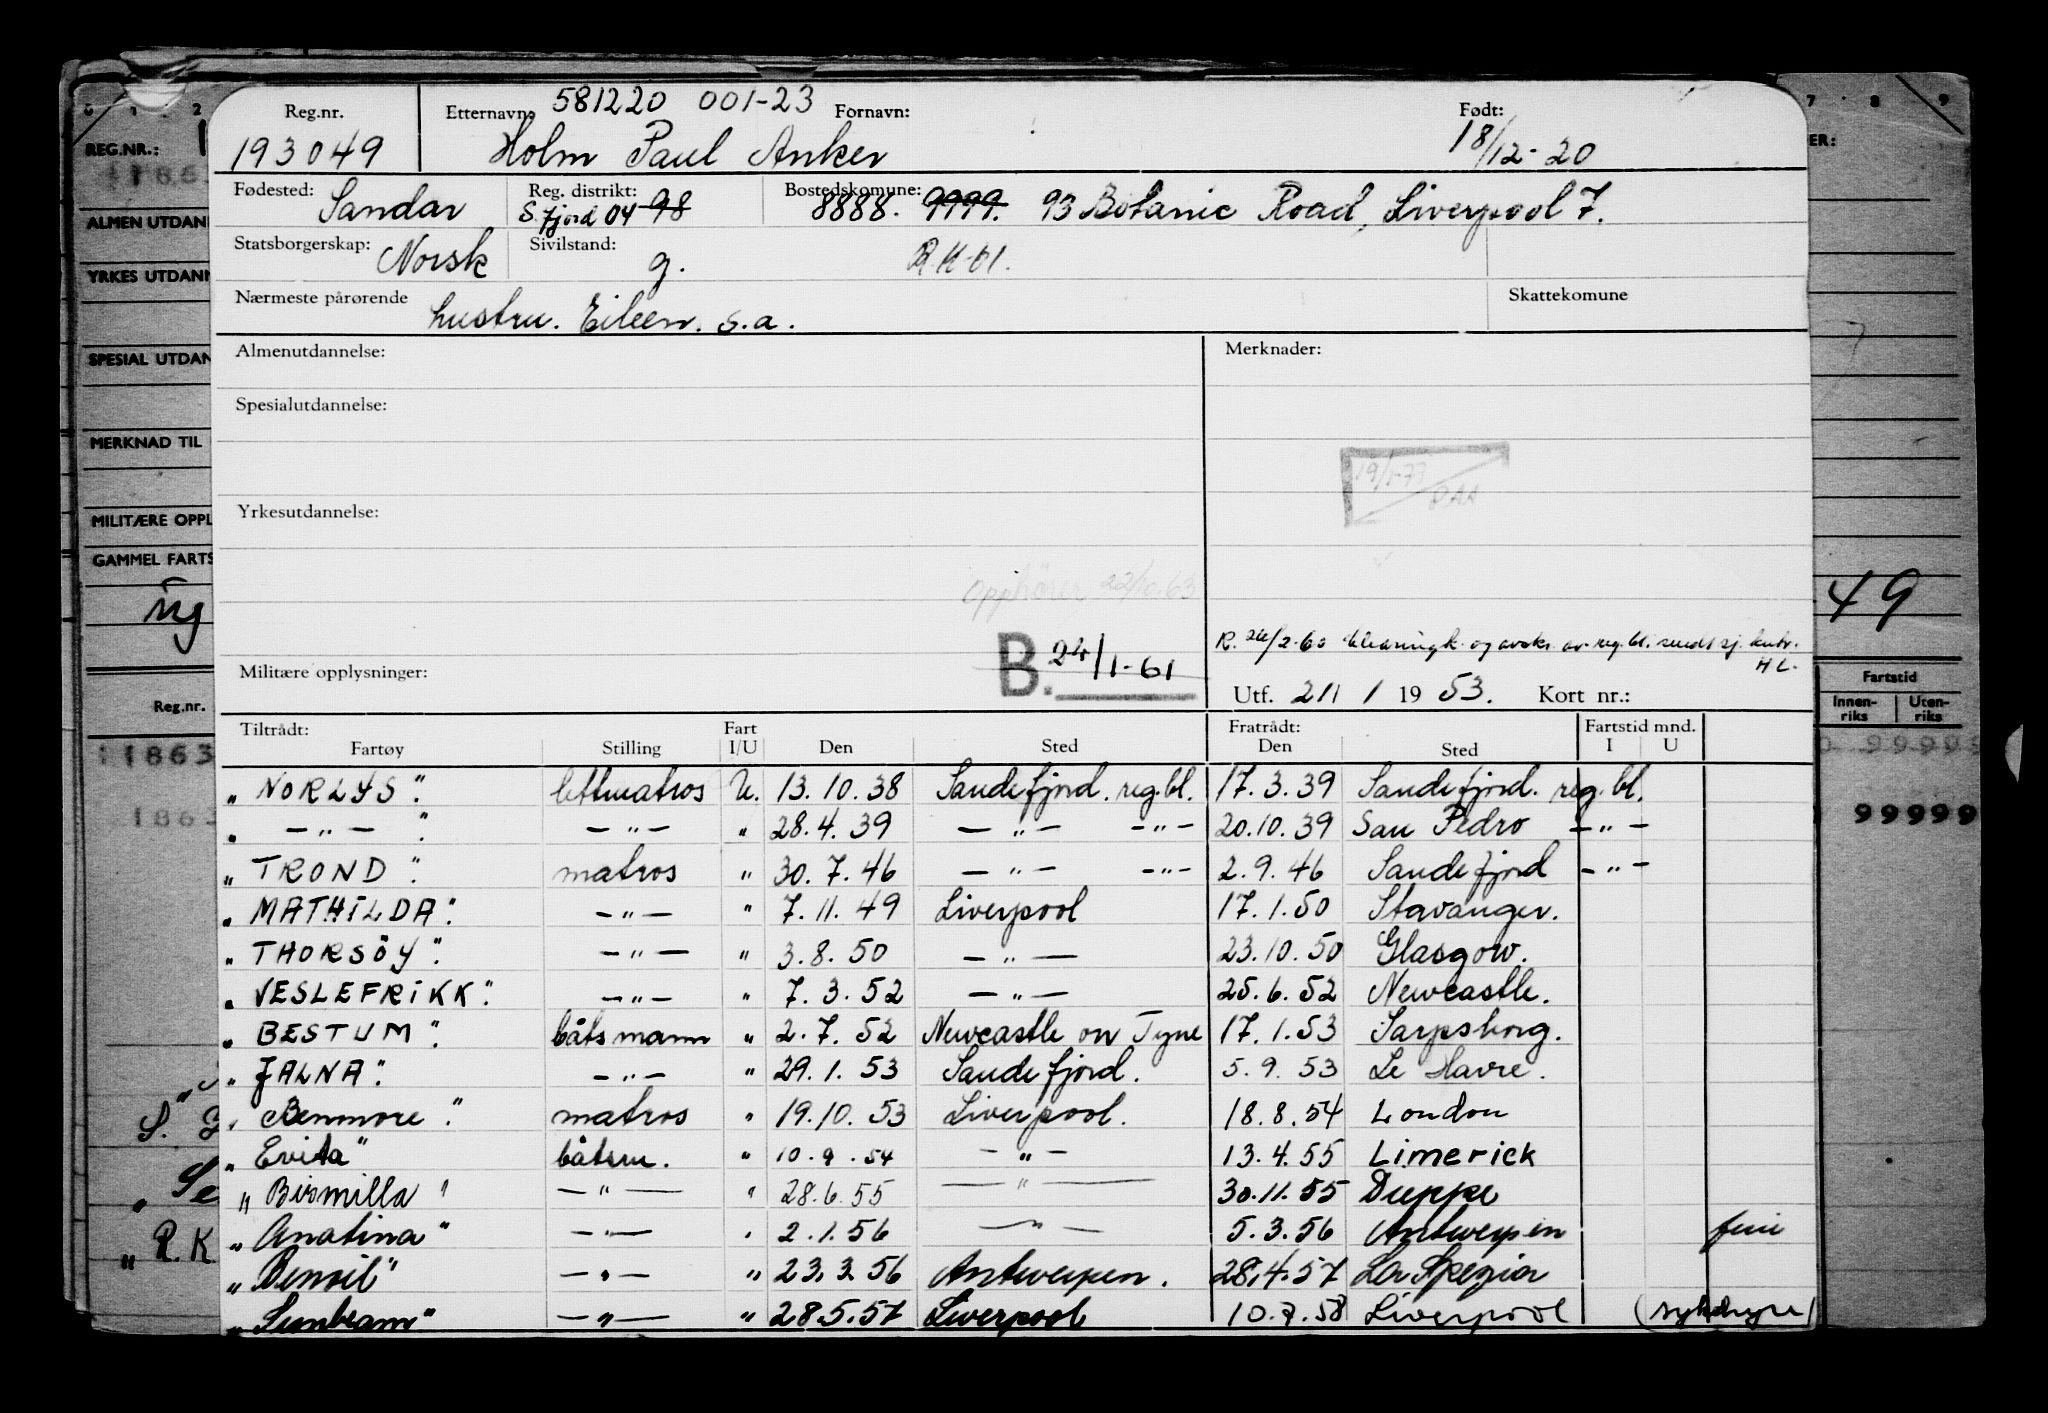 Reg.nr. Etternavn: 581220 001-23 Fornavn: Født:
193049 Holm Paul Anker 18/12-20
Fødested: Sandar Reg. distrikt: S.fjord 04 98 Bostedskomune: 8888. 9999. 93 Botanic Road, Liverpool 7.
Statsborgerskap: Norsk Sivilstand: g. R.K-61.
Nærmeste pårørende hustru. Eileen. s.a. Skattekomune
Almenutdannelse: Merknader:
Spesialutdannelse:
19/1-77
Yrkesutdannelse:
Opphører 22/10.63
B. 24/1-61
R. 26/2-60 og av reg.bl. sendt sj.
HL.
Militære opplysninger: Utf. 21/1 1953. Kort nr.:
Tiltrådt: Fart Fratrådt: Fartstid mnd.
Fartøy Stilling I/U Den Sted Den Sted I U
„ NORLYS" lettmatros U. 13.10.38 Sandefjord. reg.bl. 17.3.39 Sandefjord. reg.bl.
„ —"— " —"— " 28.4.39 —"— —"— 20.10.39 San Pedro —"—
„ TROND" matros " 30.7.46 —"— —"— 2.9.46 Sandefjord —"—
„ MATHILDA" —"— " 7.11.49 Liverpool 17.1.50 Stavanger.
„ THORSÖY" —"— " 3.8.50 —"— 23.10.50 Glasgow.
„ VESLEFRIKK" —"— " 7.3.52 —"— 25.6.52 Newcastle.
„ BESTUM" båtsmann " 2.7.52 Newcastle on Tyne 17.1.53 Sarpsborg.
„ JALNA" —"— " 29.1.53 Sandefjord. 5.9.53 Le Havre.
„ Benmore" matros " 19.10.53 Liverpool. 18.8.54 London
„ Evita" båtsm. " 10.9.54 —"— 13.4.55 Limerick
„ Bismilla" —"— " 28.6.55 —"— 30.11.55 Dieppe
„ Anatina" —"— " 2.1.56 —"— 5.3.56 Antwerpen
„ Benoil" —"— " 23.3.56 Antwerpen. 28.4.57 La Spezia
„ Sunbeam" —"— " 28.5.57 Liverpool 10.7.58 Liverpool
0 1 2 7 8 9
REG.NR.:
1863
ALMEN UTDAN
YRKES UTDANN
SPESIAL UTDAN
MERKNAD TIL
MILITÆRE OPPL
GAMMEL FARTS
ug 49
Reg.nr. Fartstid
Innen-riks Uten-riks
11863 99999
1863 99999
„ R.K